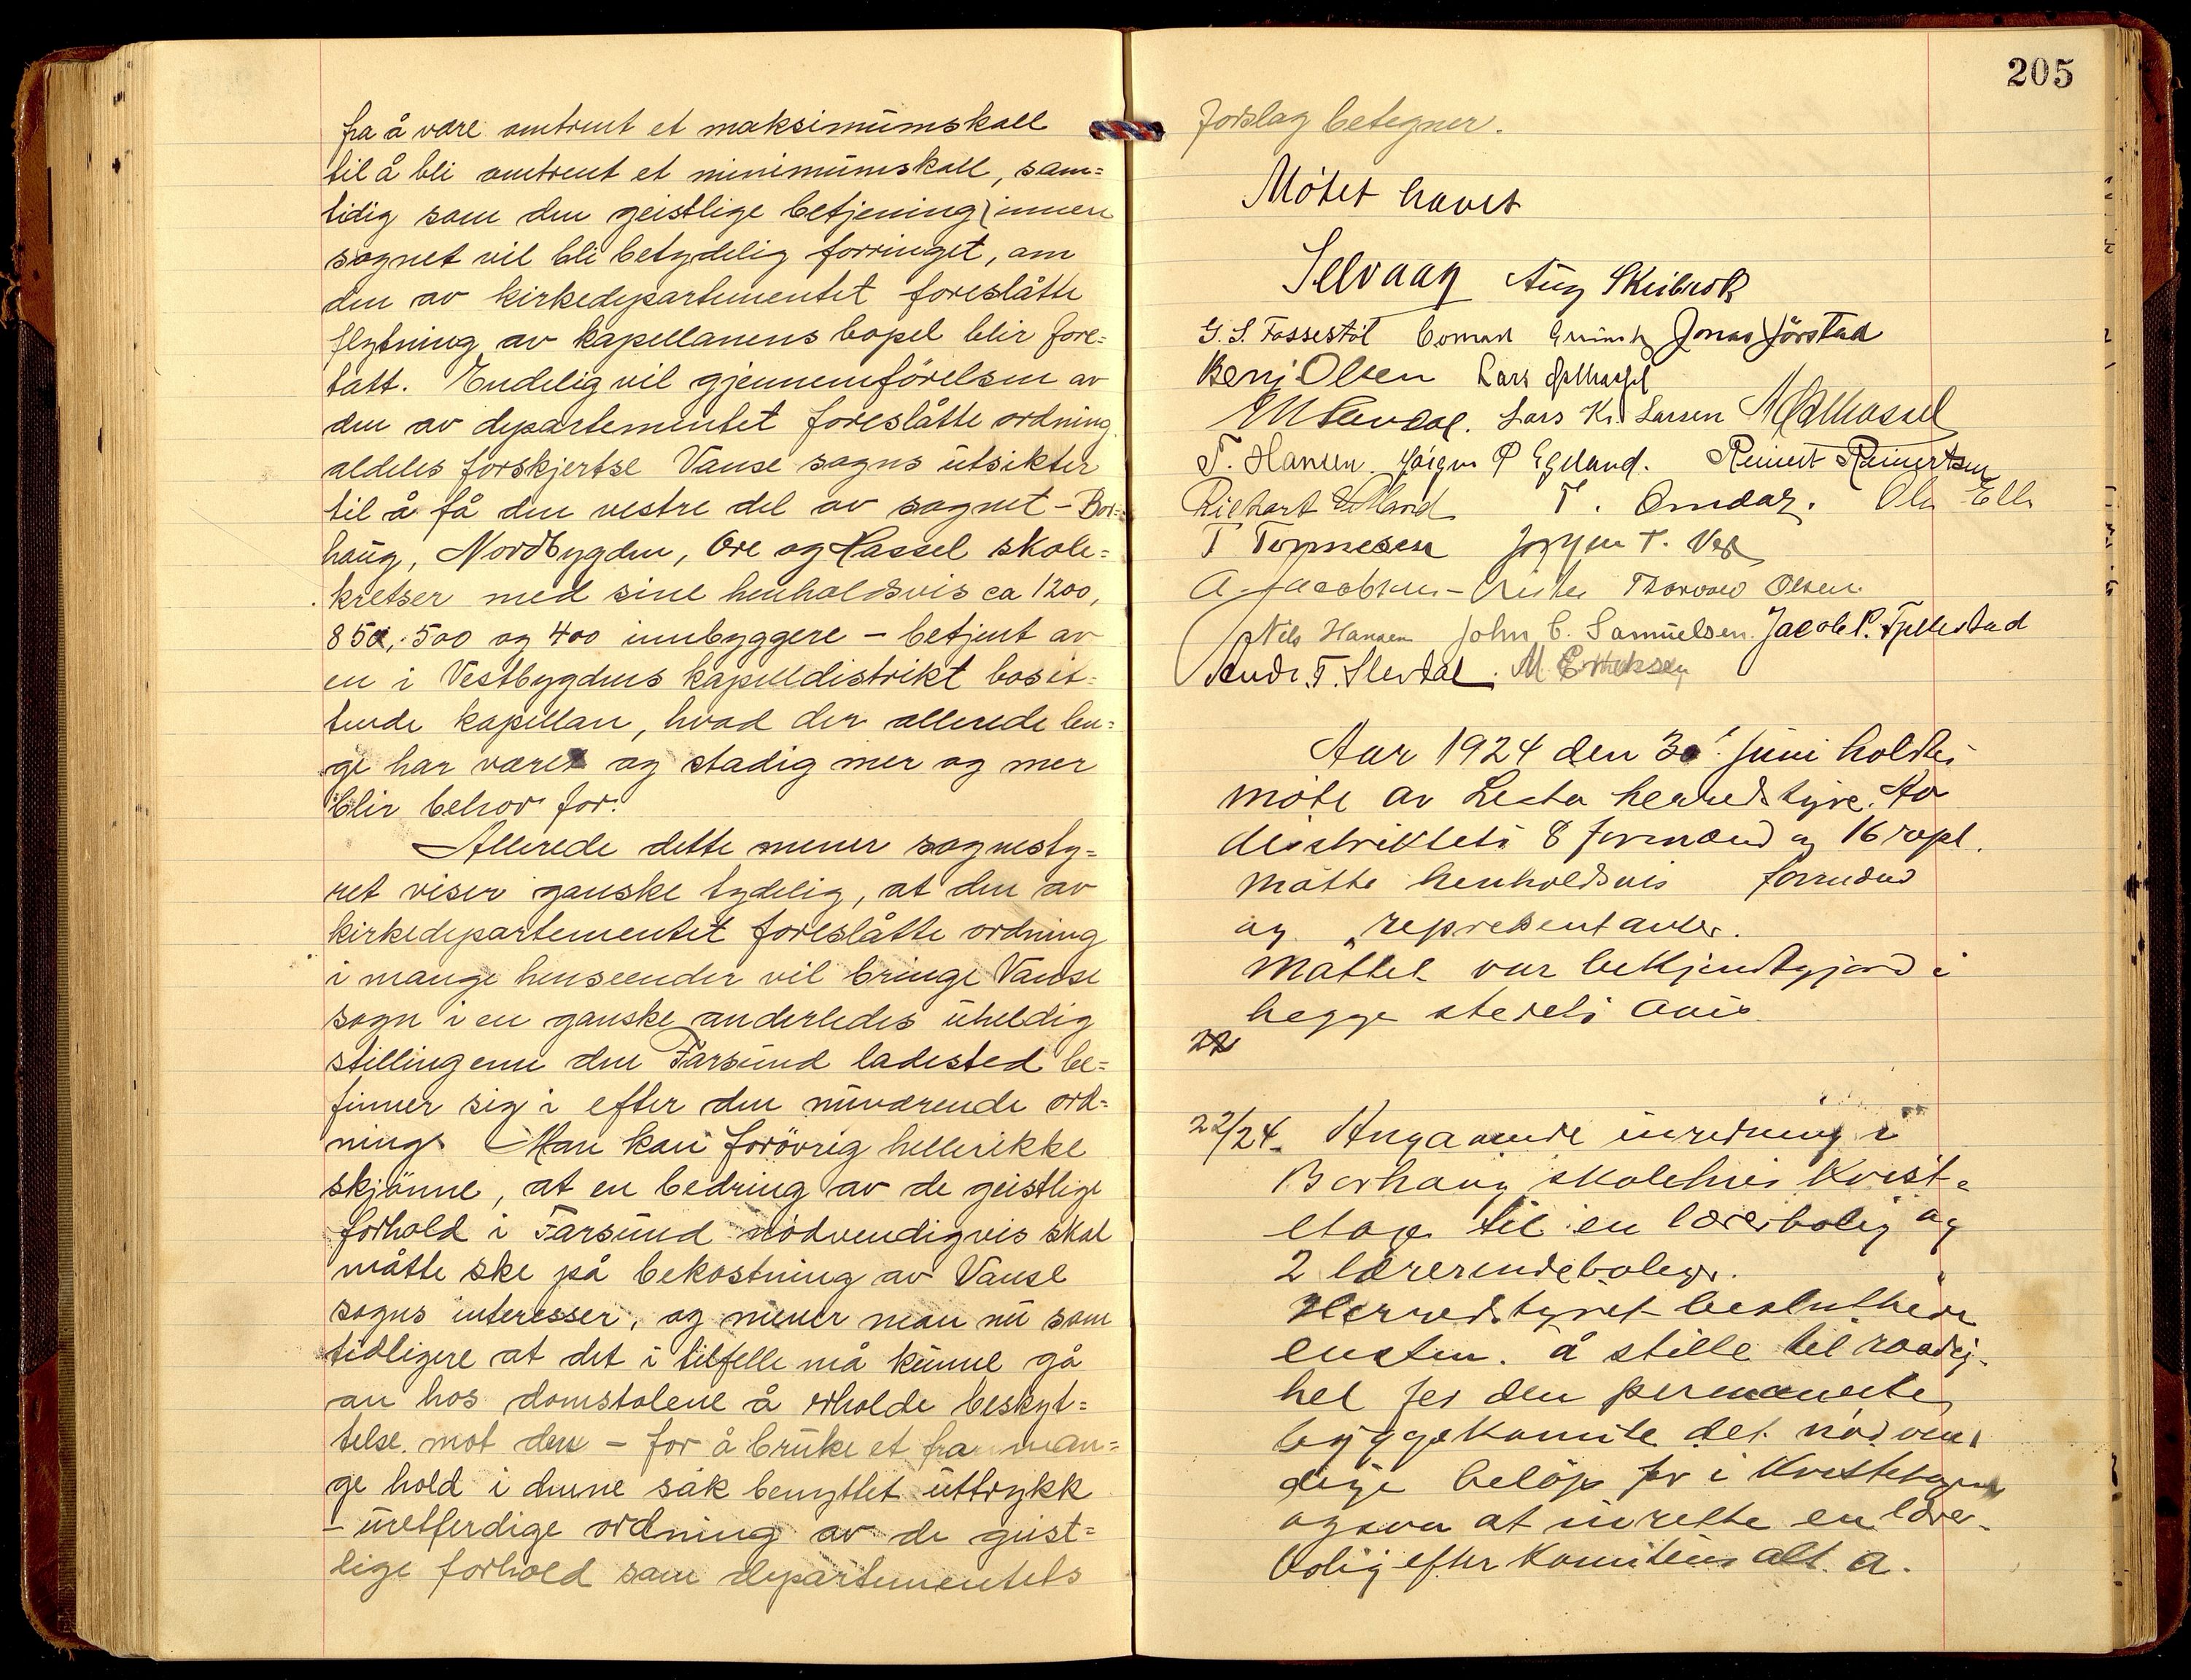 fra å være omtrent et maksimumskall
til å bli omtrent et minimumskall, sam=
tidig som den geistlige betjening innen
sognet vil bli betydelig forringet, om
den av kirkedepartementet foreslåtte
flytning av kapellanens bopel blir fore=
tatt. Endelig vil gjennemförelsen av
den av departementet foreslåtte ordning
aldeles forskjertse Vanse sogns utsikter
til å få den vestre del av sognet - Bor=
haug, Nordbygden, Ore og Hassel skole=
kretser med sine henholdsvis ca 1200,
850, 500 og 400 innbyggere - betjent av
en i Vestbygdens kapelldistrikt bosit=
tende kapellan, hvad der allerede len=
ge har været og stadig mer og mer
blir behov for.
Allerede dette mener sognesty=
ret viser ganske tydelig, at den av
kirkedepartementet foreslåtte ordning
i mange henseender vil bringe Vanse
sogn i en ganske anderledes uheldig
stilling enn den Farsund ladested be=
finner sig i efter den nuværende ord=
ning. Man kan forövrig heller ikke
skjönne, at en bedring av de geistlige
forhold i Farsund nödvendigvis skal
måtte ske på bekostning av Vanse
sogns interesser, og mener man nu som
tidligere at det i tilfelle må kunne gå
an hos domstolene å erholde beskyt=
telse mot den - for å bruke et fra man=
ge hold i denne sak benyttet uttrykk
- uretferdige ordning av de geist=
lige forhold som departementets
205
forslag betegner.
Mötet hævet
Selvaag Aug Skeibrok
G. S. Fossestöl Jonas Jörstad
Benj Olsen Lars
Lars Kr. Larsen
T. Hansen. P Egeland. Reinert Reinertsen
T. Omdal. Ole
T Tönnesen T.
A. Jacobsen - Thorvald Olsen.
Nils Hansen John C. Samuelsen. Jacob P. Fjellestad
Andr. T. Slevdal. M Eriksen
Aar 1924 den 30' Juni holdtes
möte av Lista herredstyre. Av
distriktets 8 formænd og 16 repr.
mötte henholdsvis formænd
og representanter.
Möttet var bekjendtgjord i
begge steders avis.
22
22/24. Angaaende inredning i
Borhaug skolehus kvist=
etage til en lærerbolig og
2 lærerindeboliger.
Herredstyret besluttede
enstem. å stille til raadig-
het for den permanente
byggekomite det nödven
dige belöp for i kvistetagen
ogsaa at inrette en lærer-
bolig efter komiteens alt. a.